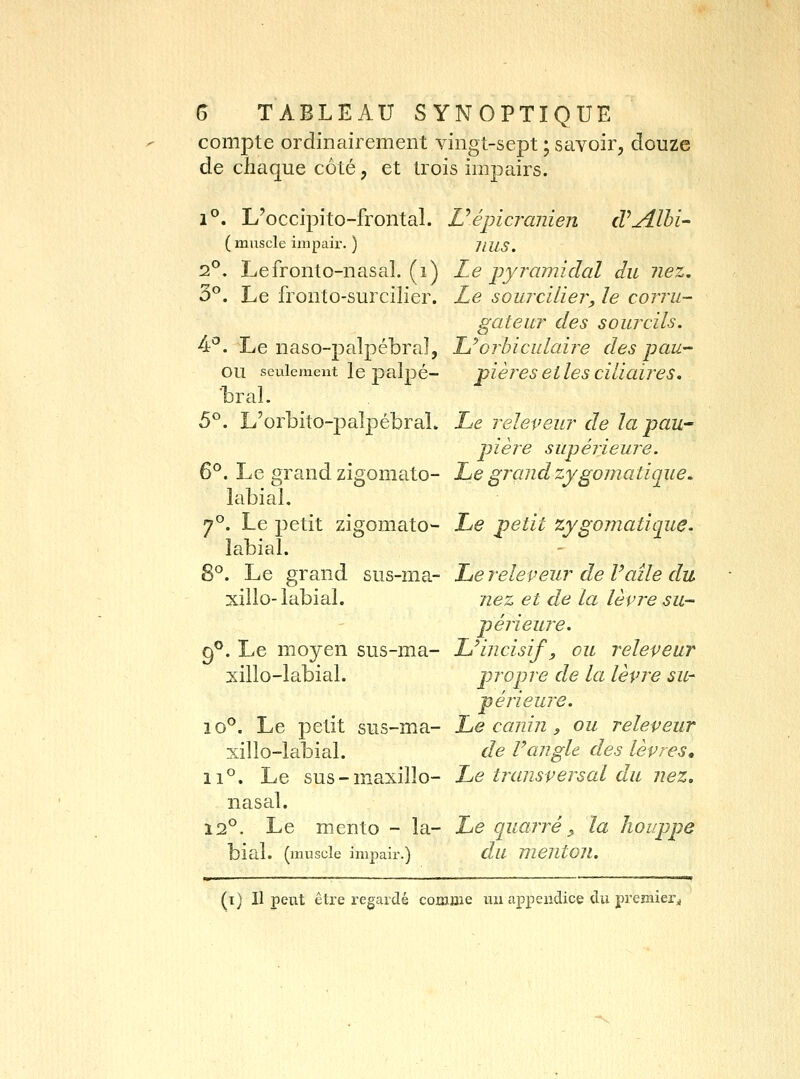 6 TABLEAU SYNOPTIQUE
compte ordinairement vingt-sept ; savoir, douze
de chaque côté, et trois impairs.
1°. L'occipito-frontal. L'épicranien d'Albi-
( muscle impair. ) nus.
2°. Le fronto-nasal. (1) Le pyramidal du nez.
3°. Le fronto-surcilier. Le sourcilier, le corru-
gateur des sourcils.
4°. Le naso-palpébral, L'orbiculaire des pau-
ou seulement le palpé- pières et les ciliaires.
bral.
5°. L'orbito-palpébral. Le releveur de la pau-
pière supérieure.
6°. Le grand zigomato- Le grand zygomatique.
labial.
7°. Le petit zigomato- Le petit zygomatique.
labial.
8°. Le grand sus-ma- Le releveur de l'aîle du
xillo-labial. nez et de la lèvre su-
périeure.
9°. Le moyen sus-ma- L'incisif, ou releveur
xillo-labial. propre de la lèvre su-
périeure.
10°. Le petit sus-ma- Le canin, ou releveur
xillo-labial. de l'angle des lèvres.
11°. Le sus-maxillo- Le transversal du nez.
nasal.
12°. Le mento - la- Le quarré, la houppe
bial. (muscle impair.) du menton.
(1) Il peut être regardé comme un appendice du premier.